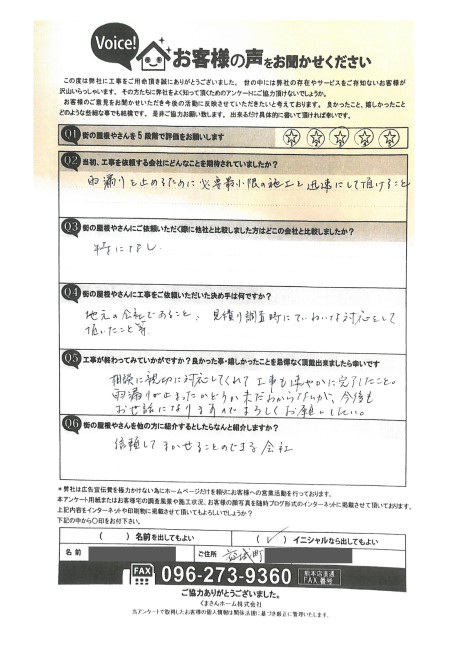 Voice!
お客様の声をお聞かせください
この度は弊社に工事をご用命頂き誠にありがとうございました。 世の中には弊社の存在やサービスをご存知ないお客様が
沢山いらっしゃいます。 その方たちに弊社をよく知って頂くためのアンケートにご協力頂けないでしょうか。
お客様のご意見をお聞かせいただき今後の活動に反映させていただきたいと考えております。 良かったこと、嬉しかったこと
どのような些細な事でも結構です。 是非ご協力お願い致します。 出来るだけ具体的に書いて頂ければ幸いです。
Q1 街の屋根やさんを5段階で評価をお願いします
Q2 当初、工事を依頼する会社にどんなことを期待されていましたか?
雨漏りを止めるために必要最小限の施工と迅速にして頂けること
Q3 街の屋根やさんにご依頼いただく際に他社と比較しました方はどこの会社と比較しましたか?
特になし
Q4 街の屋根やさんに工事をご依頼いただいた決め手は何ですか?
地元の会社であること、見積り調査時にていねいな対応をして
頂いたこと等
Q5 工事が終わってみていかがですか?良かった事・嬉しかったことを忌憚なく頂戴出来ましたら幸いです
相談に親切に対応してくれて工事も速やかに完了したこと。
雨漏りが止まったかどうか未だわからないが、今後も
お世話になりますのでよろしくお願いしたい。
Q6 街の屋根やさんを他の方に紹介するとしたらなんと紹介しますか?
信頼してまかせることのできる会社
*弊社は広告宣伝費を極力かけない為にホームページだけを頼りにお客様への営業活動を行っております。
本アンケート用紙またはお客様宅の調査風景や施工状況、お客様の顔写真を随時ブログ形式のインターネットに掲載させて頂いております。
上記内容をインターネットや印刷物に掲載させて頂いてもよろしいでしょうか?
下記の中から〇印をお付下さい。
( ) 名前を出してもよい ( ✓ ) イニシャルなら出してもよい
名前 ご住所 益城町
FAX 096-273-9360 熊本店直通 FAX番号
ご協力ありがとうございました。
くまさんホーム株式会社
当アンケートで取得したお客様の個人情報は関係法図に基づき厳正に管理いたします。